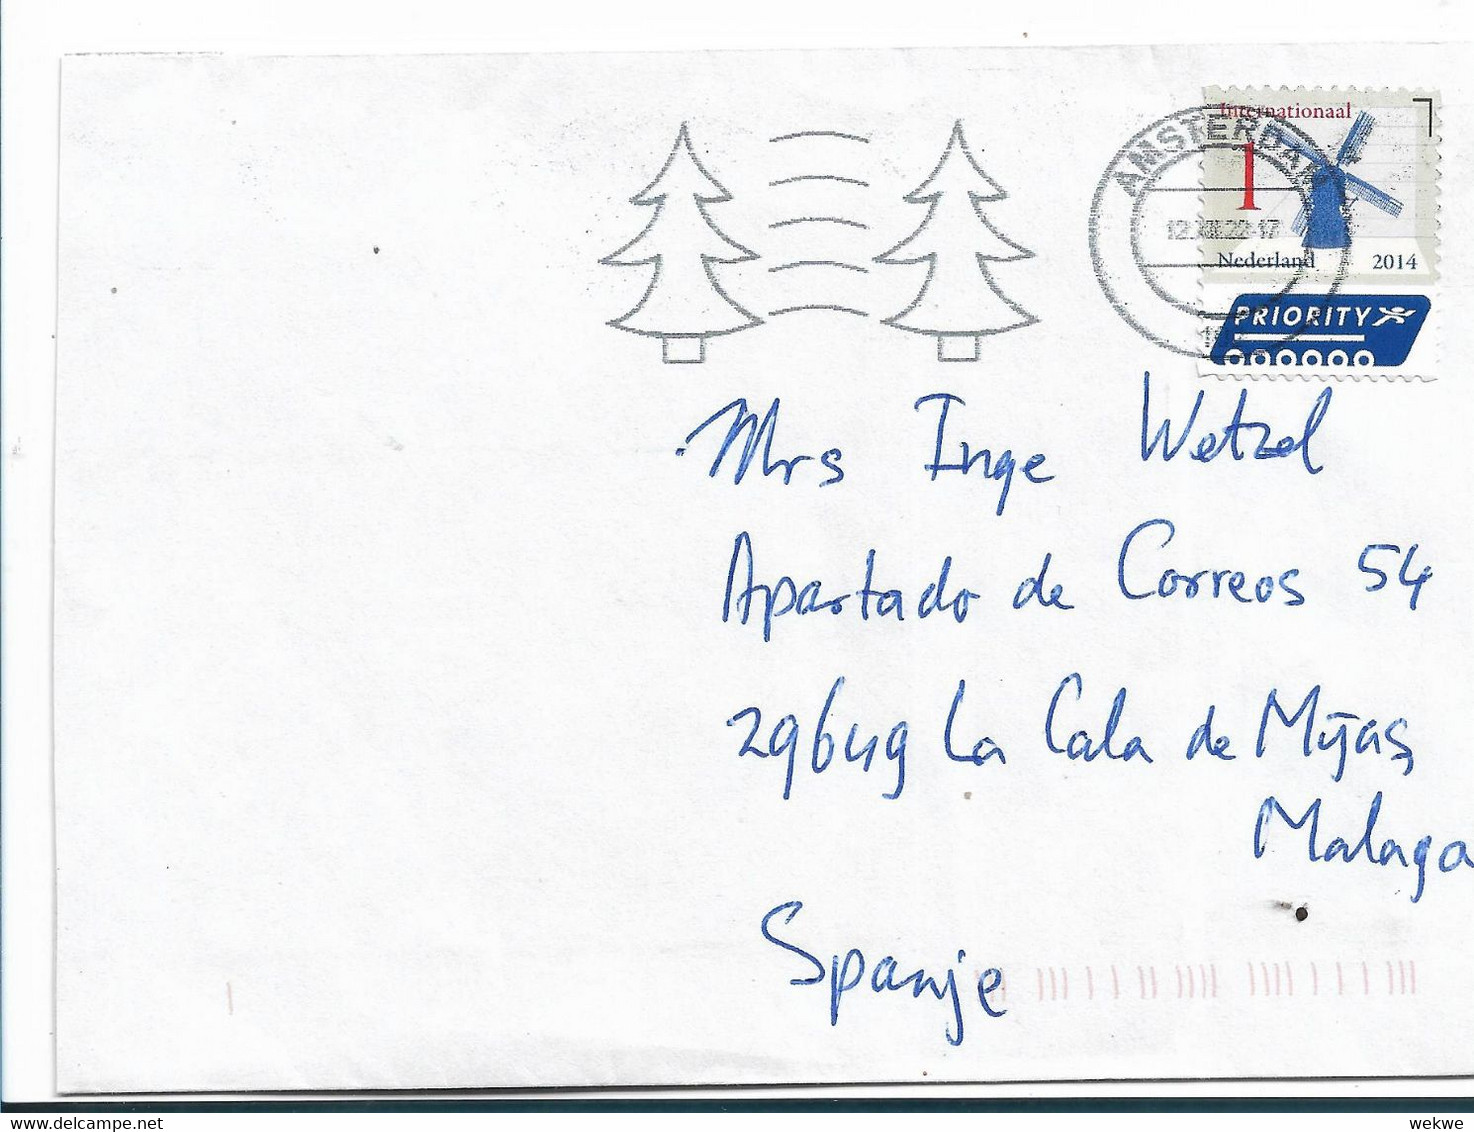 Internationaal
1
Nederland 2014
PRIORITY
AMSTERDAM
Mrs Inge Wetzel
Apartado de Correos 54
29649 La Cala de Mijas
Malaga
Spanje
wekwe